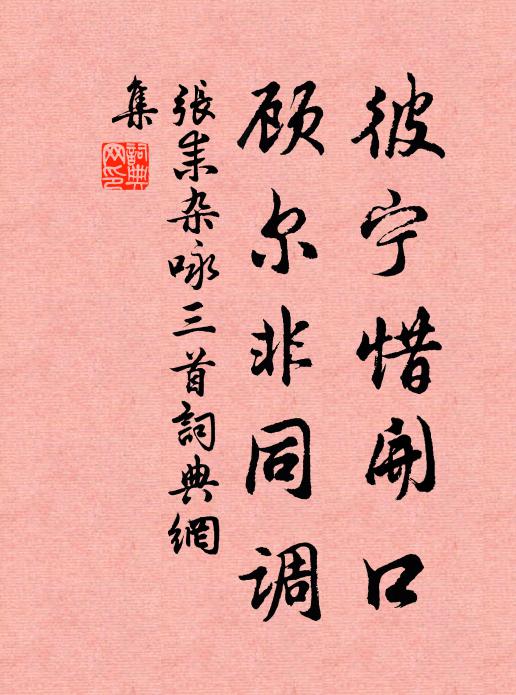 彼宁惜开口
顾尔非同调
張耒杂咏三首詞典網
集
詞典网印